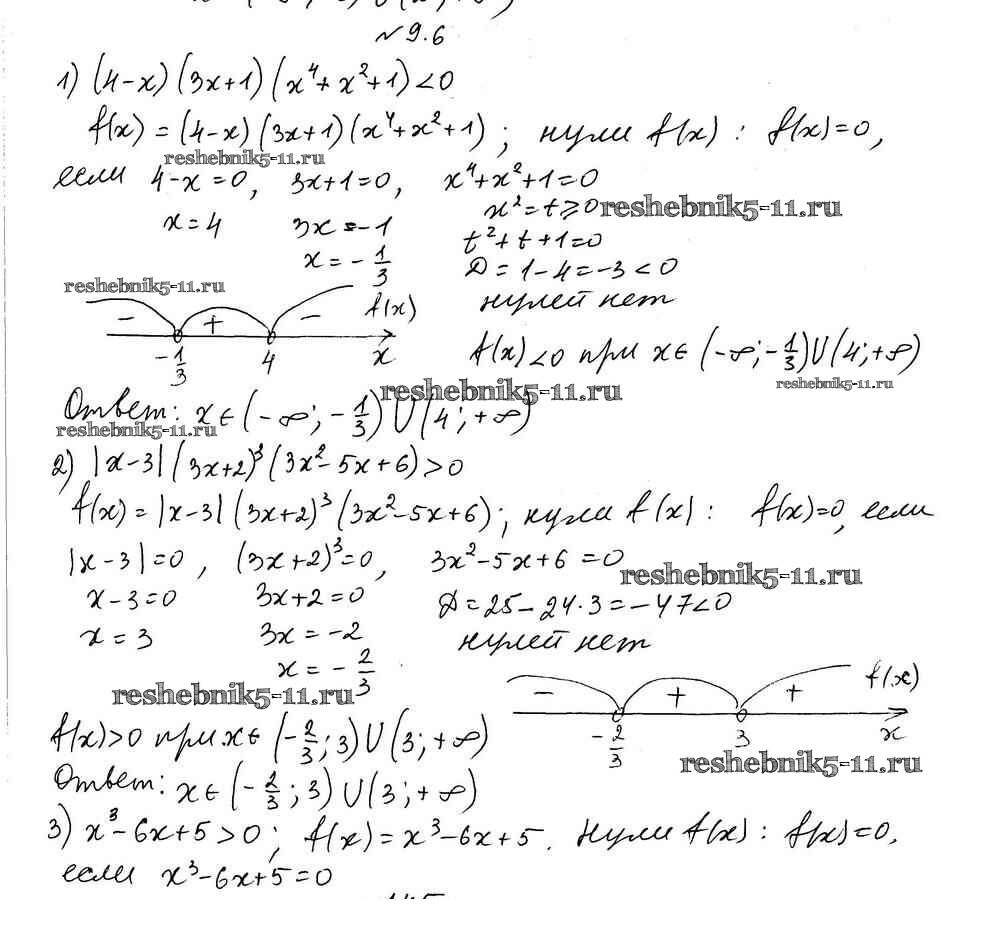 № 9.6
1) (4-x)(3x+1)(x⁴+x²+1)<0
f(x)=(4-x)(3x+1)(x⁴+x²+1); нули f(x): f(x)=0,
reshebnik5-11.ru
если 4-x=0, 3x+1=0, x⁴+x²+1=0
x=4 3x=-1 x²=t⩾0 reshebnik5-11.ru
x=-1/3 t²+t+1=0
D=1-4=-3<0
reshebnik5-11.ru
нулей нет
- + - f(x)
-1/3 4 x
f(x)<0 при x∈(-∞;-1/3)U(4;+∞)
reshebnik5-11.ru
reshebnik5-11.ru
Ответ: x∈(-∞;-1/3)U(4;+∞)
reshebnik5-11.ru
2) |x-3|(3x+2)³(3x²-5x+6)>0
f(x)=|x-3|(3x+2)³(3x²-5x+6); нули f(x): f(x)=0, если
|x-3|=0, (3x+2)³=0, 3x²-5x+6=0
reshebnik5-11.ru
x-3=0 3x+2=0 D=25-24·3=-47<0
x=3 3x=-2 нулей нет
x=-2/3
reshebnik5-11.ru
- + + f(x)
-2/3 3 x
f(x)>0 при x∈(-2/3;3)U(3;+∞)
reshebnik5-11.ru
Ответ: x∈(-2/3;3)U(3;+∞)
3) x³-6x+5>0; f(x)=x³-6x+5. Нули f(x): f(x)=0,
если x³-6x+5=0